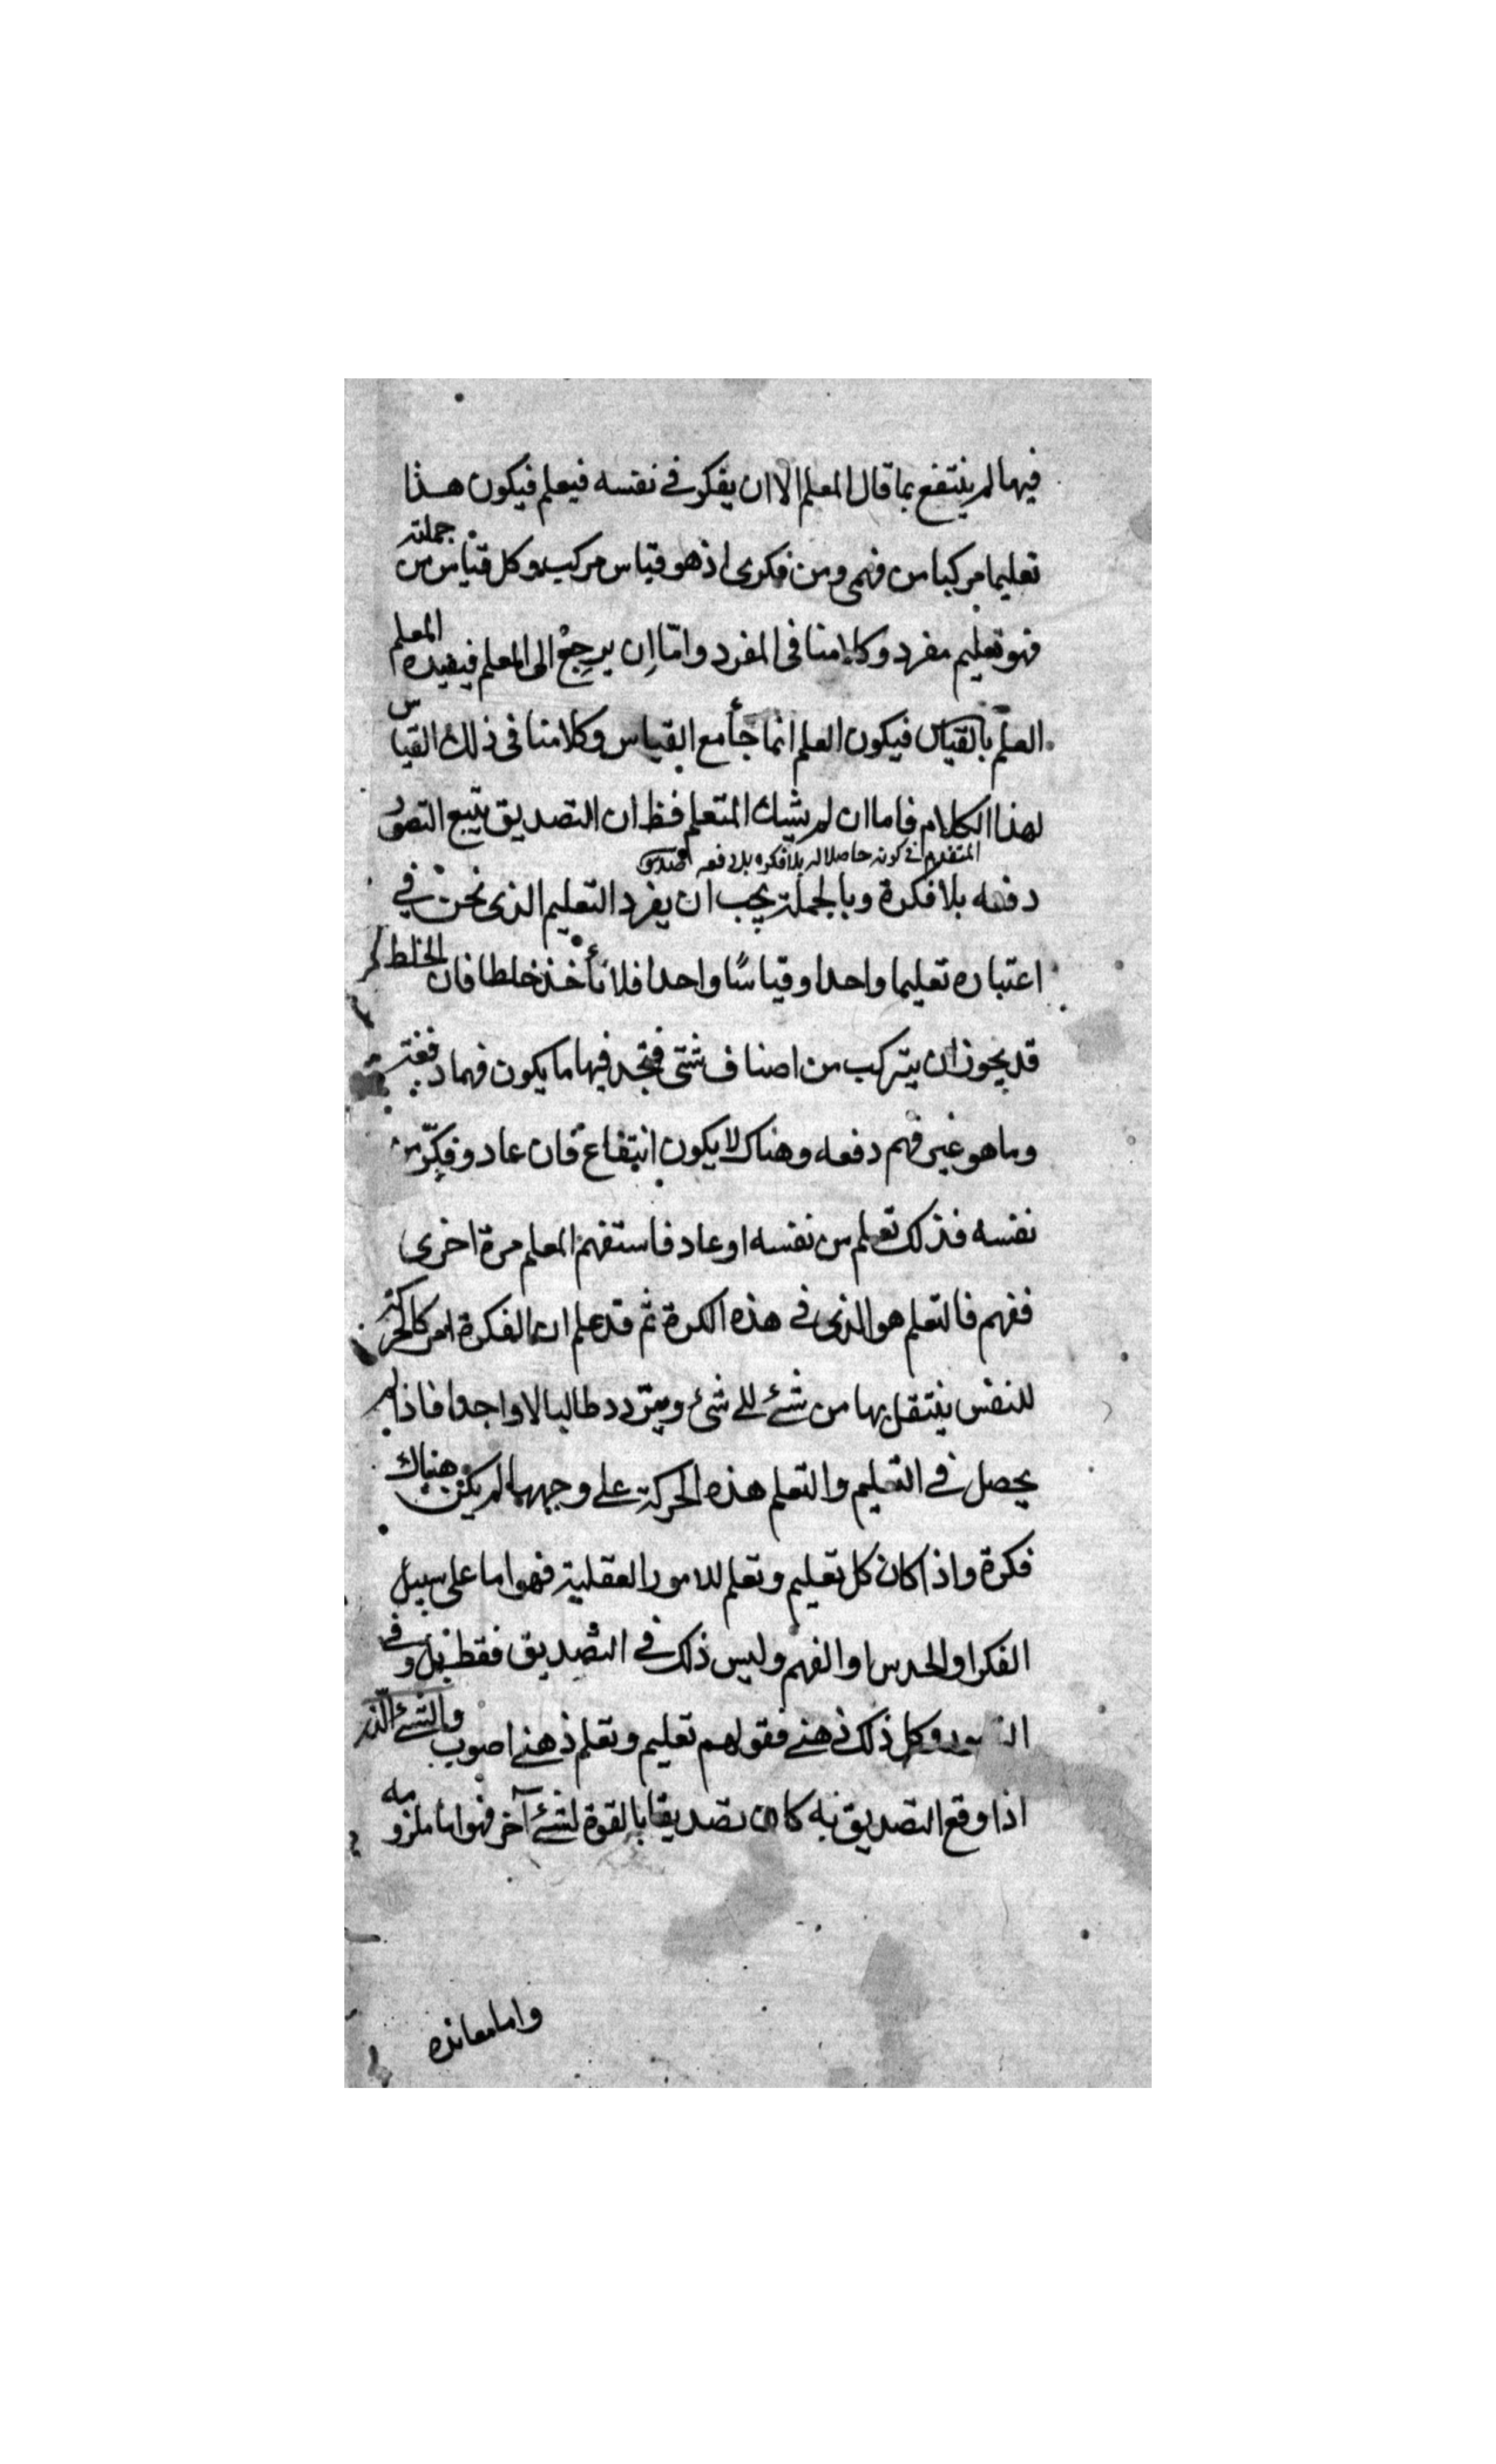 فيها لم ينتفع بما قال المعلم الا ان يفكر في نفسه فيعلم فيكون هذا
تعليما مركبا من فهمي ومن فكري اذ هو قياس مركب وكل قياس من جملته
فهو تعليم مفرد وكلامنا في المفرد وامّا اِن يرجع الى المعلم فيفيده المعلم
العلم بالقياس فيكون العلم انما جأ مع القياس وكلامنا في ذلك القياس
لهذا الكلام فاما ان لم يشك المتعلم فظ ان التصديق يتبع التصور
المتقدم في كونه حاصلا له بلا فكره بل دفعه
دفعه بلا فكرة وبالجملة يجب ان يفرد التعليم الذي نحن في
اعتباره تعليما واحدا وقياسًا واحدا فلا تأخذ خلطا فان الخلط
قد يجوز ان يتركب من اصناف شتى فتجد فيها ما يكون فهما دفعة
وما هو غير فهم دفعه وهناك لا يكون انتفاع فان عاد وفكّر من
نفسه فذلك تعلم من نفسه او عاد فاستفهم المعلم مرة اخرى
ففهم فالتعلم هو الذي في هذه الكرة ثم قد علم ان الفكرة امر كالحركة
للنفس ينتقل بها من شئ الى شئ ويتردد طالبا لا واجدا فاذا لم
يحصل في التعليم والتعلم هذه الحركة على وجهها لم يكن هناك
فكرة واذا كان كل تعليم وتعلم للامور العقلية فهو اما على سبيل
الفكر او الحدس او الفهم وليس ذلك في التصديق فقط بل وفي
التصور وكل ذلك ذهني فقولهم تعليم وتعلم ذهني اصوب والشئ الذي
اذا وقع التصديق به كان تصديقا بالقوة لشئ آخر فهو اما ملزومه
واما معانده